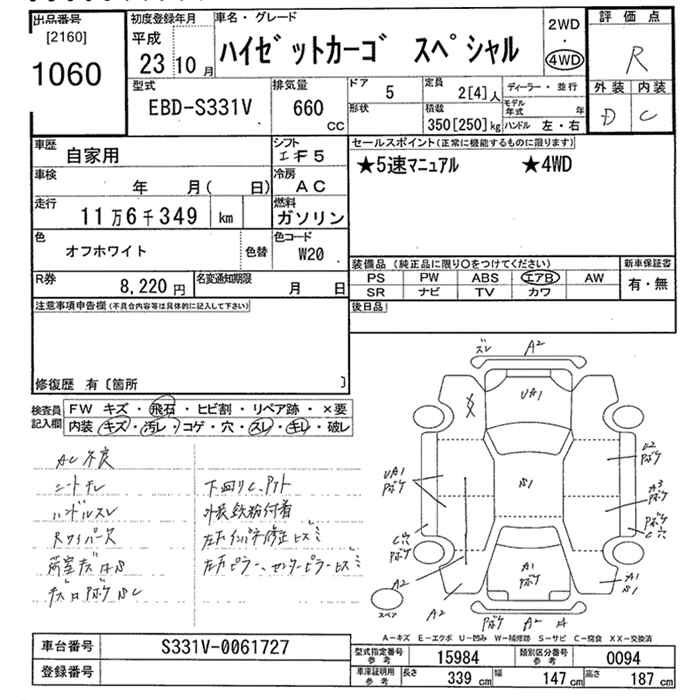 出品番号
[2160]
1060
初度登録年月
平成
23 10 月
車名・グレード
ハイゼットカーゴ スペシャル
2WD
・
4WD
評価点
R
外装 内装
D C
型式
EBD-S331V
排気量
660
CC
ドア
5
形状
定員
2[4]人
積載
350[250]kg
ディーラー・並行
モデル年式 年
ハンドル 左・右
車歴
自家用
シフト
F5
車検
年 月( 日)
冷房
AC
走行
11万6千349 km
燃料
ガソリン
色
オフホワイト
色替
色コード
W20
R券
8,220円
名変通知期限
月 日
セールスポイント(正常に機能するものに限ります)
★5速マニュアル ★4WD
装備品 (純正品に限り○をつけてください)
PS PW ABS エアB AW
SR ナビ TV カワ
新車保証書
有・無
後日品
注意事項申告欄(不具合内容等は具体的に記入して下さい)
修復歴 有〔箇所 〕
検査員記入欄
FW キズ・飛石・ヒビ割・リペア跡・×要
内装・キズ・汚レ・コゲ・穴・スレ・キレ・破レ
AC不良
シートキレ
ハンドルスレ
Rワイパー欠
荷室キズ
下回りC、Pタト
外装鉄粉付着
ズレ A2
U小1
S1
UA1
Pボケ
U2
Pボケ
A3
Pボケ
C穴
Pボケ
Pボケ
C穴
A1
Pボケ
A2
A2
A1
S1
スペア
Pボケ A2
A-キズ E-エクボ U-凹み W-補修跡 S-サビ C-腐食 XX-交換済
車台番号
S331V-0061727
登録番号
型式指定番号
参考
15984
類別区分番号
参考
0094
車庫証明用
参考
長さ
339 cm
幅
147 cm
高さ
187 cm